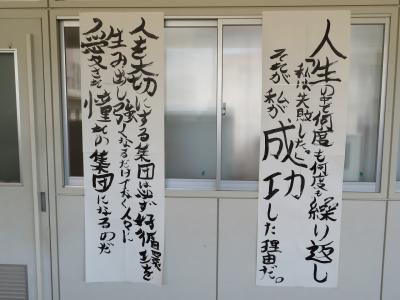 人生の中で何度も何度も繰り返し
「私は失敗した」
それが私が成功した理由だ。
人を大切にする集団は必ず好循環を
生み出し強くなるだけでなく人々か
ら愛され憧れの集団になるのだ